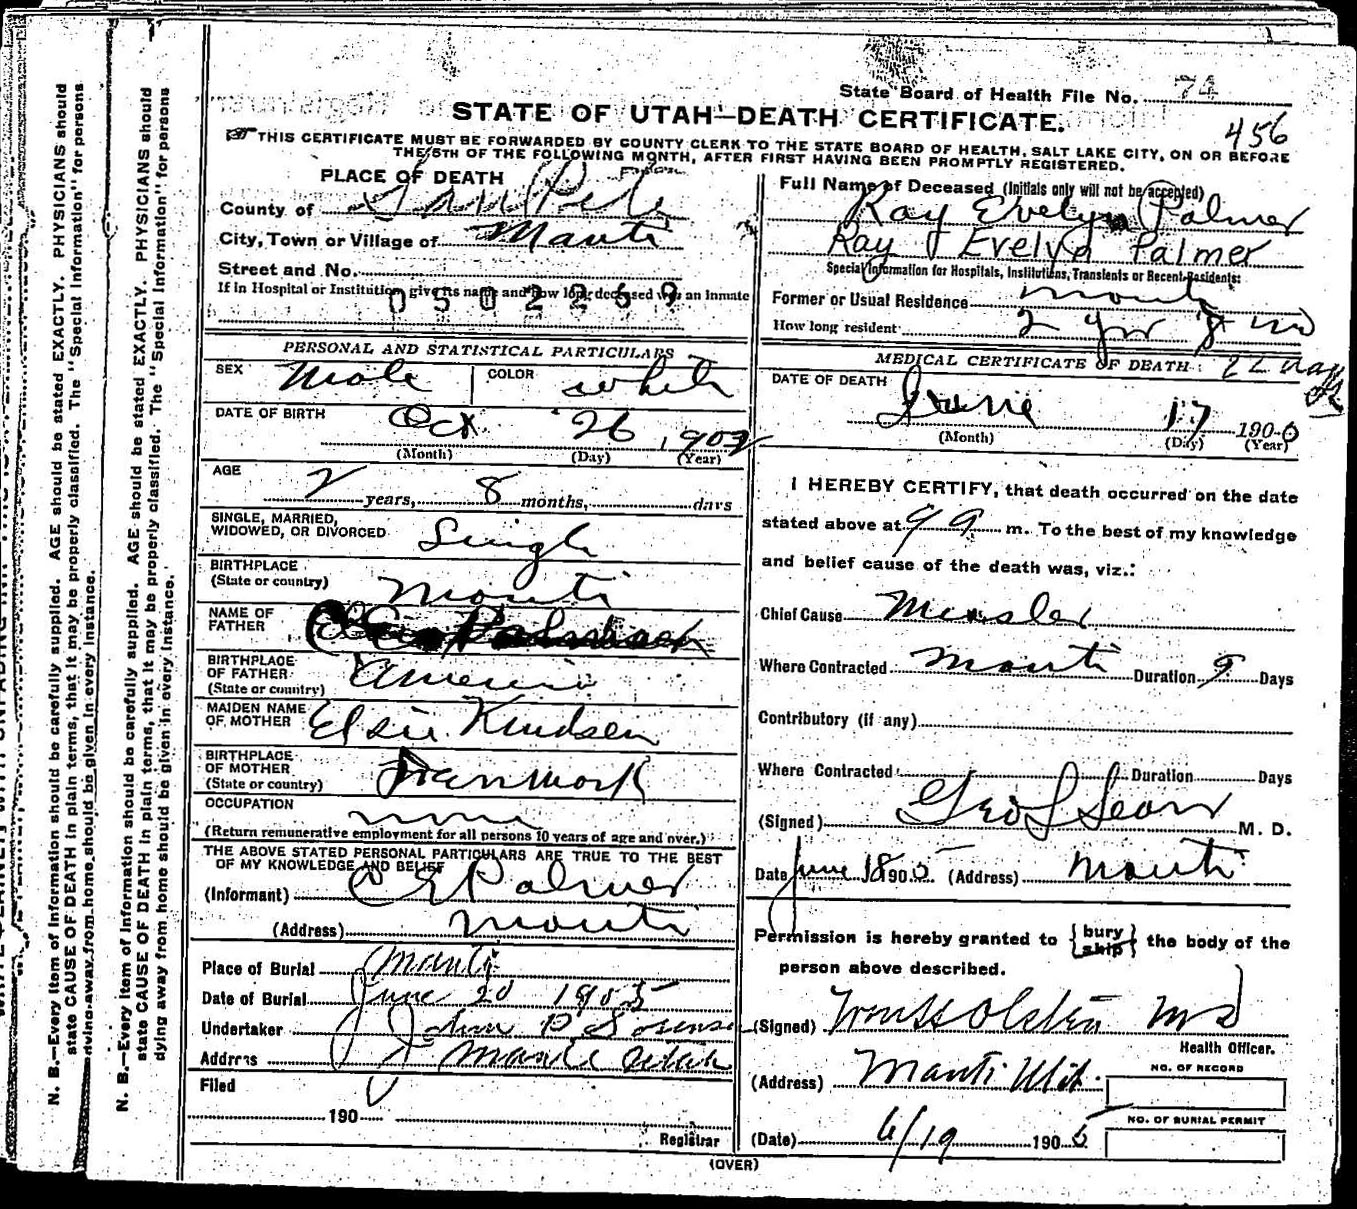 State Board of Health File No. 74
STATE OF UTAH—DEATH CERTIFICATE.
456
THIS CERTIFICATE MUST BE FORWARDED BY COUNTY CLERK TO THE STATE BOARD OF HEALTH, SALT LAKE CITY, ON OR BEFORE
THE 5TH OF THE FOLLOWING MONTH, AFTER FIRST HAVING BEEN PROMPTLY REGISTERED.
PLACE OF DEATH
County of San Pete
City, Town or Village of Manti
Street and No.
If in Hospital or Institution, give its name and how long deceased was an inmate
0502269
PERSONAL AND STATISTICAL PARTICULARS
SEX Male COLOR White
DATE OF BIRTH Oct 26 1902
(Month) (Day) (Year)
AGE
2 years, 8 months, days
SINGLE, MARRIED,
WIDOWED, OR DIVORCED Single
BIRTHPLACE
(State or country) Manti
NAME OF
FATHER
BIRTHPLACE
OF FATHER
(State or country)
MAIDEN NAME
OF MOTHER Elsie Knudsen
BIRTHPLACE
OF MOTHER
(State or country)
OCCUPATION
(Return remunerative employment for all persons 10 years of age and over.)
THE ABOVE STATED PERSONAL PARTICULARS ARE TRUE TO THE BEST
OF MY KNOWLEDGE AND BELIEF
(Informant) C E Palmer
(Address) Manti
Place of Burial Manti
Date of Burial June 20 1905
Undertaker John P Sorensen
Address Manti Utah
Filed
190
Registrar
Full Name of Deceased (Initials only will not be accepted)
Ray Evelyn Palmer
Ray Evelyn Palmer
Special Information for Hospitals, Institutions, Transients or Recent Residents:
Former or Usual Residence Manti
How long resident 2 yrs 8 mo
22 days
MEDICAL CERTIFICATE OF DEATH
DATE OF DEATH June 17 1905
(Month) (Day) (Year)
I HEREBY CERTIFY, that death occurred on the date
stated above at 9 a m. To the best of my knowledge
and belief cause of the death was, viz.:
Chief Cause Measles
Where Contracted Manti Duration 9 Days
Contributory (if any)
Where Contracted Duration Days
(Signed) Geo L Sears M. D.
Date June 18 1905 (Address) Manti
Permission is hereby granted to {bury ship} the body of the
person above described.
(Signed) Olsten MD
Health Officer.
(Address) Manti Utah.
NO. OF RECORD
NO. OF BURIAL PERMIT
(Date) 6/19 1905
(OVER)
N. B.—Every item of information should be carefully supplied. AGE should be stated EXACTLY. PHYSICIANS should
state CAUSE OF DEATH in plain terms, that it may be properly classified. The "Special Information" for persons
dying away from home should be given in every instance.
N. B.—Every item of information should be carefully supplied. AGE should be stated EXACTLY. PHYSICIANS should
state CAUSE OF DEATH in plain terms, that it may be properly classified. The "Special Information" for persons
dying away from home should be given in every instance.